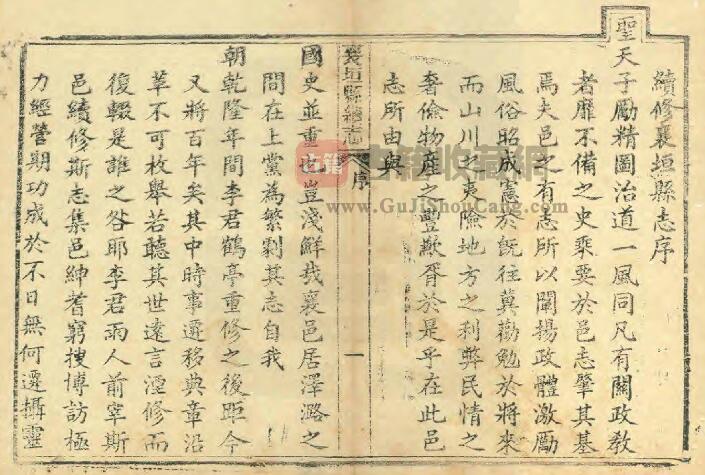 續修襄垣縣志序
聖天子勵精圖治道一風同凡有關政教
者靡不備之史乘要於邑志肇其基
焉夫邑之有志所以闡揚政體激勵
風俗昭成憲於既往冀勸勉於將來
而山川之夷險地方之利弊民情之
奢儉物產之豐歉胥於是乎在此邑
志所由與
襄垣縣續志
序
一
國史並重也豈淺鮮哉襄邑居澤潞之
間在上黨為繁劇其志自我
朝乾隆年間李君鶴亭重修之後距今
又將百年矣其中時事遷移典章沿
革不可枚舉若聽其世遠言湮修而
復輟是誰之咎耶李君雨人前宰斯
邑續修斯志集邑紳耆窮搜博訪極
力經營期功成於不日無何遷攝靈
古籍
古籍收藏網
www.GuJiShouCang.com